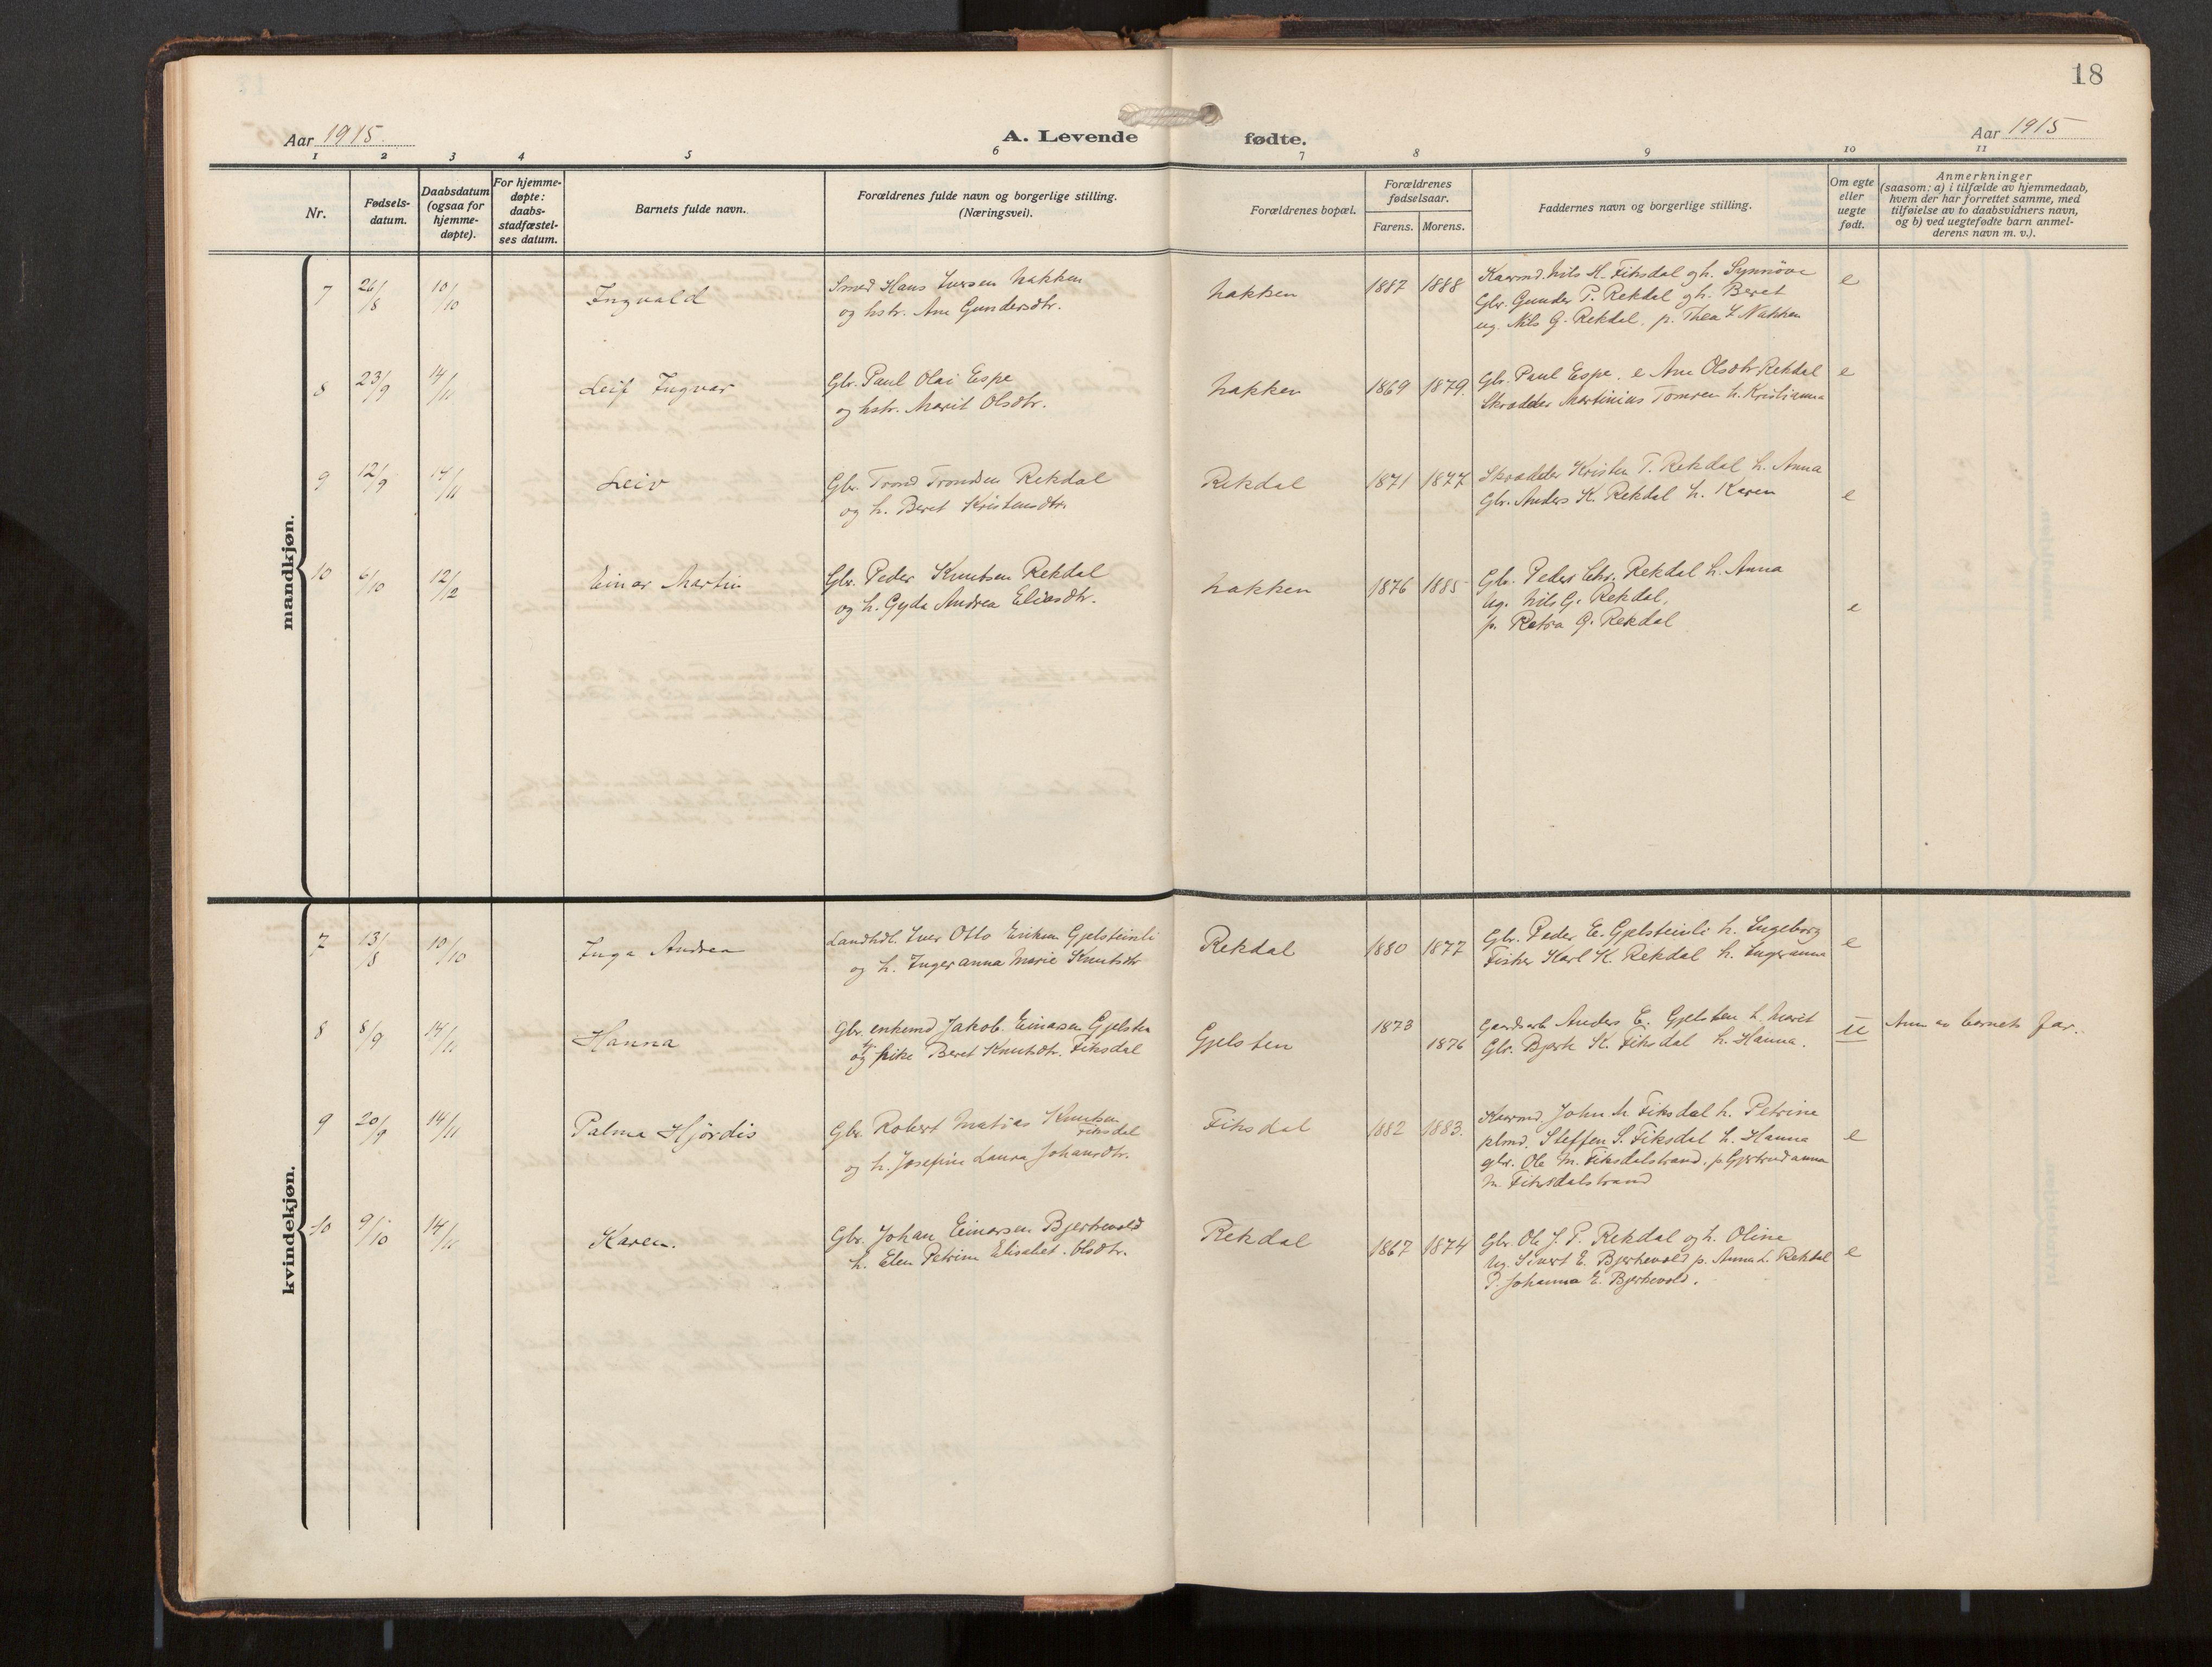 18
Aar 1915
A. Levende fødte.
Aar 1915
1 2 3 4 5 6 7 8 9 10 11
Nr.
Fødsels-
datum.
Daabsdatum
(ogsaa for
hjemme-
døpte).
For hjemme-
døpte:
daabs-
stadfæstel-
ses datum.
Barnets fulde navn.
Forældrenes fulde navn og borgerlige stilling.
(Næringsvei).
Forældrenes bopæl.
Forældrenes
fødselsaar.
Farens. Morens.
Faddernes navn og borgerlige stilling.
Om egte
eller
uegte
født.
Anmerkninger
(saasom: a) i tilfælde av hjemmedaab,
hvem der har forrettet samme, med
tilføielse av to daabsvidners navn,
og b) ved uegtefødte barn anmel-
derens navn m. v.).
mandkjøn.
7 26/8 10/10 Ingvald
Smed Hans Iversen Nakken
og hstr. Ane Gundersdtr.
Nakken 1887 1888
Kaarmd. Nils H. Fiksdal og h. Synnöve
Gbr. Gunder P. Rekdal og h. Beret
ug. Nils G. Rekdal. p. Thea I. Nakken
e
8 23/9 14/11 Leif Ingvar
Gbr. Paul Olai Espe
og hstr. Marit Olsdtr.
Nakken 1869 1879.
Gbr. Paul Espe. e Ane Olsdtr Rekdal
Skrædder Martinius Tomren h. Kristianna
e
9 12/9 14/11 Leiv
Gbr. Trond Trondsen Rekdal
og h. Beret Kristensdtr.
Rekdal 1871 1877
Skrædder Kristen T. Rekdal h. Anna
Gbr. Anders K. Rekdal h. Karen
e
10 6/10 12/12 Einar Martin
Gbr. Peder Knutsen Rekdal
og h. Gyda Andrea Eliasdtr.
Nakken 1876 1885
Gbr. Peder Chr. Rekdal h. Anna
Ug. Nils G. Rekdal.
p. Petra G. Rekdal
e
kvindekjøn.
7 13/8 10/10 Inga Andrea
Landhdl. Iver Otto Eriksen Gjelsteinli
og h. Ingeranna Marie Knutsdtr
Rekdal 1880 1877
Gbr. Peder E. Gjelsteinli h. Ingeborg
Fisker Karl K. Rekdal h. Ingeranna
e
8 8/9 14/11 Hanna
Gbr. enkemd Jakob Einarsen Gjelsten
og pike Beret Knutsdtr. Fiksdal
Gjelsten 1873 1876
Gaardsarb Anders E. Gjelsten h. Marit
Gbr. Bjørk K. Fiksdal h. Hanna.
u
Anm av barnets far.
9 20/9 14/11 Palma Hjördis
Gbr. Robert Matias Knutsen
Fiksdal
og h. Josefine Laura Johansdtr.
Fiksdal 1882 1883.
Kaarmd. John M Fiksdal h. Petrine
plmd. Steffen S. Fiksdal h. Hanna
gbr. Ole M. Fiksdalstrand. p Gjertrudanna
M. Fiksdalstrand
e
10 9/10 14/11 Karen.
Gbr. Johan Einarsen Bjerkevold
h. Elen Petrine Elisabet Olsdtr.
Rekdal 1867 1874
Gbr. Ole J. P. Rekdal og h. Oline
Ug. Sivert E. Bjerkevold p. Anna L. Rekdal
P. Johanna E. Bjerkevold.
e